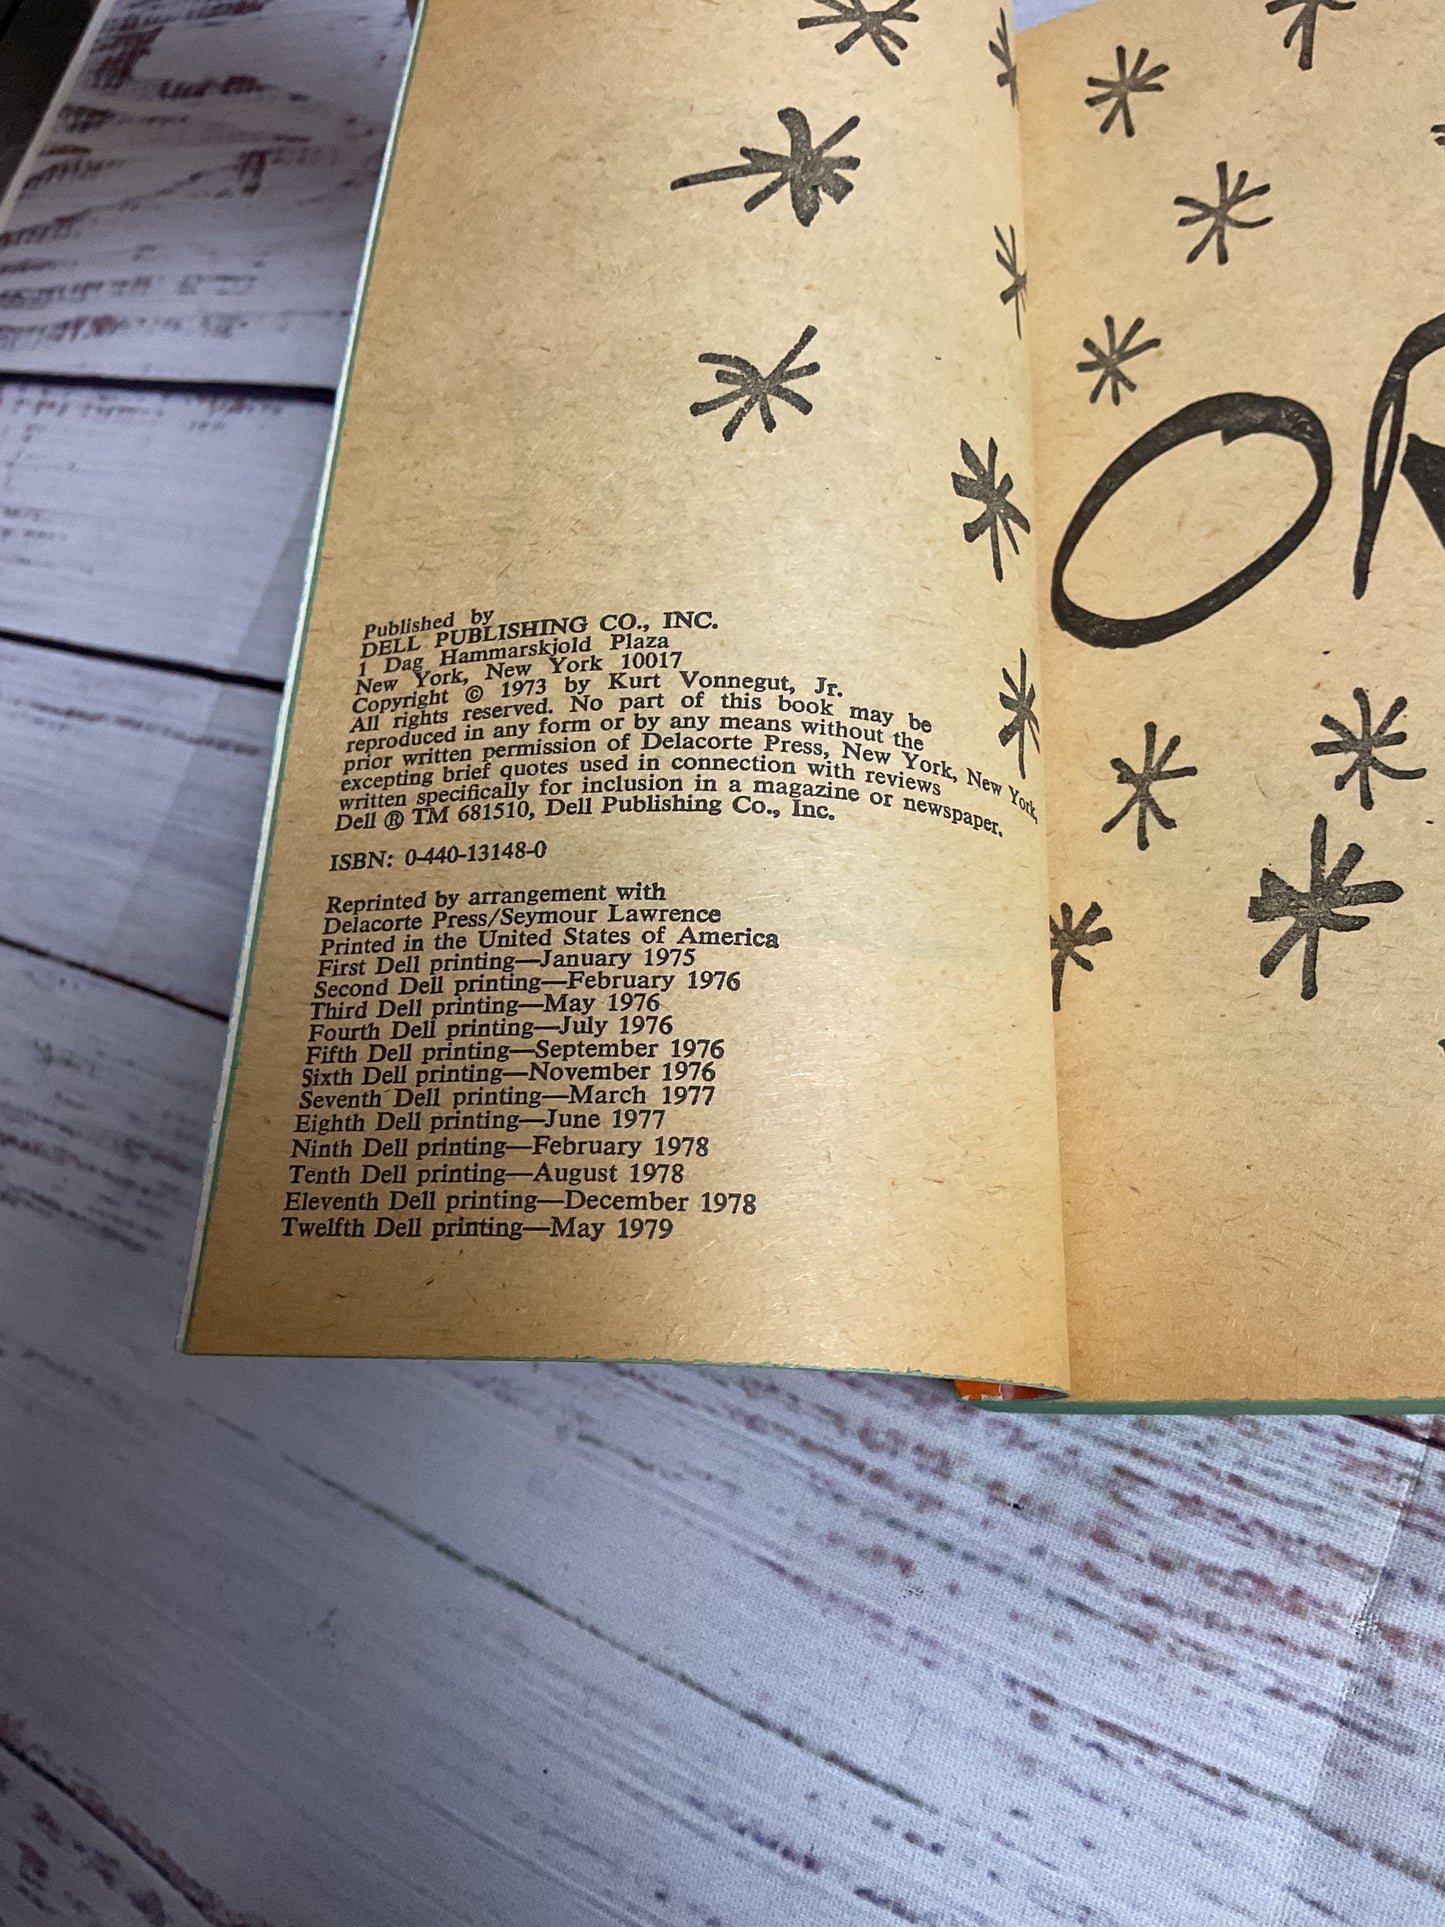 Published by
DELL PUBLISHING CO., INC.
1 Dag Hammarskjold Plaza
New York, New York 10017
Copyright © 1973 by Kurt Vonnegut, Jr.
All rights reserved. No part of this book may be
reproduced in any form or by any means without the
prior written permission of Delacorte Press, New York, New York,
excepting brief quotes used in connection with reviews
written specifically for inclusion in a magazine or newspaper.
Dell ® TM 681510, Dell Publishing Co., Inc.
ISBN: 0-440-13148-0
Reprinted by arrangement with
Delacorte Press/Seymour Lawrence
Printed in the United States of America
First Dell printing—January 1975
Second Dell printing—February 1976
Third Dell printing—May 1976
Fourth Dell printing—July 1976
Fifth Dell printing—September 1976
Sixth Dell printing—November 1976
Seventh Dell printing—March 1977
Eighth Dell printing—June 1977
Ninth Dell printing—February 1978
Tenth Dell printing—August 1978
Eleventh Dell printing—December 1978
Twelfth Dell printing—May 1979